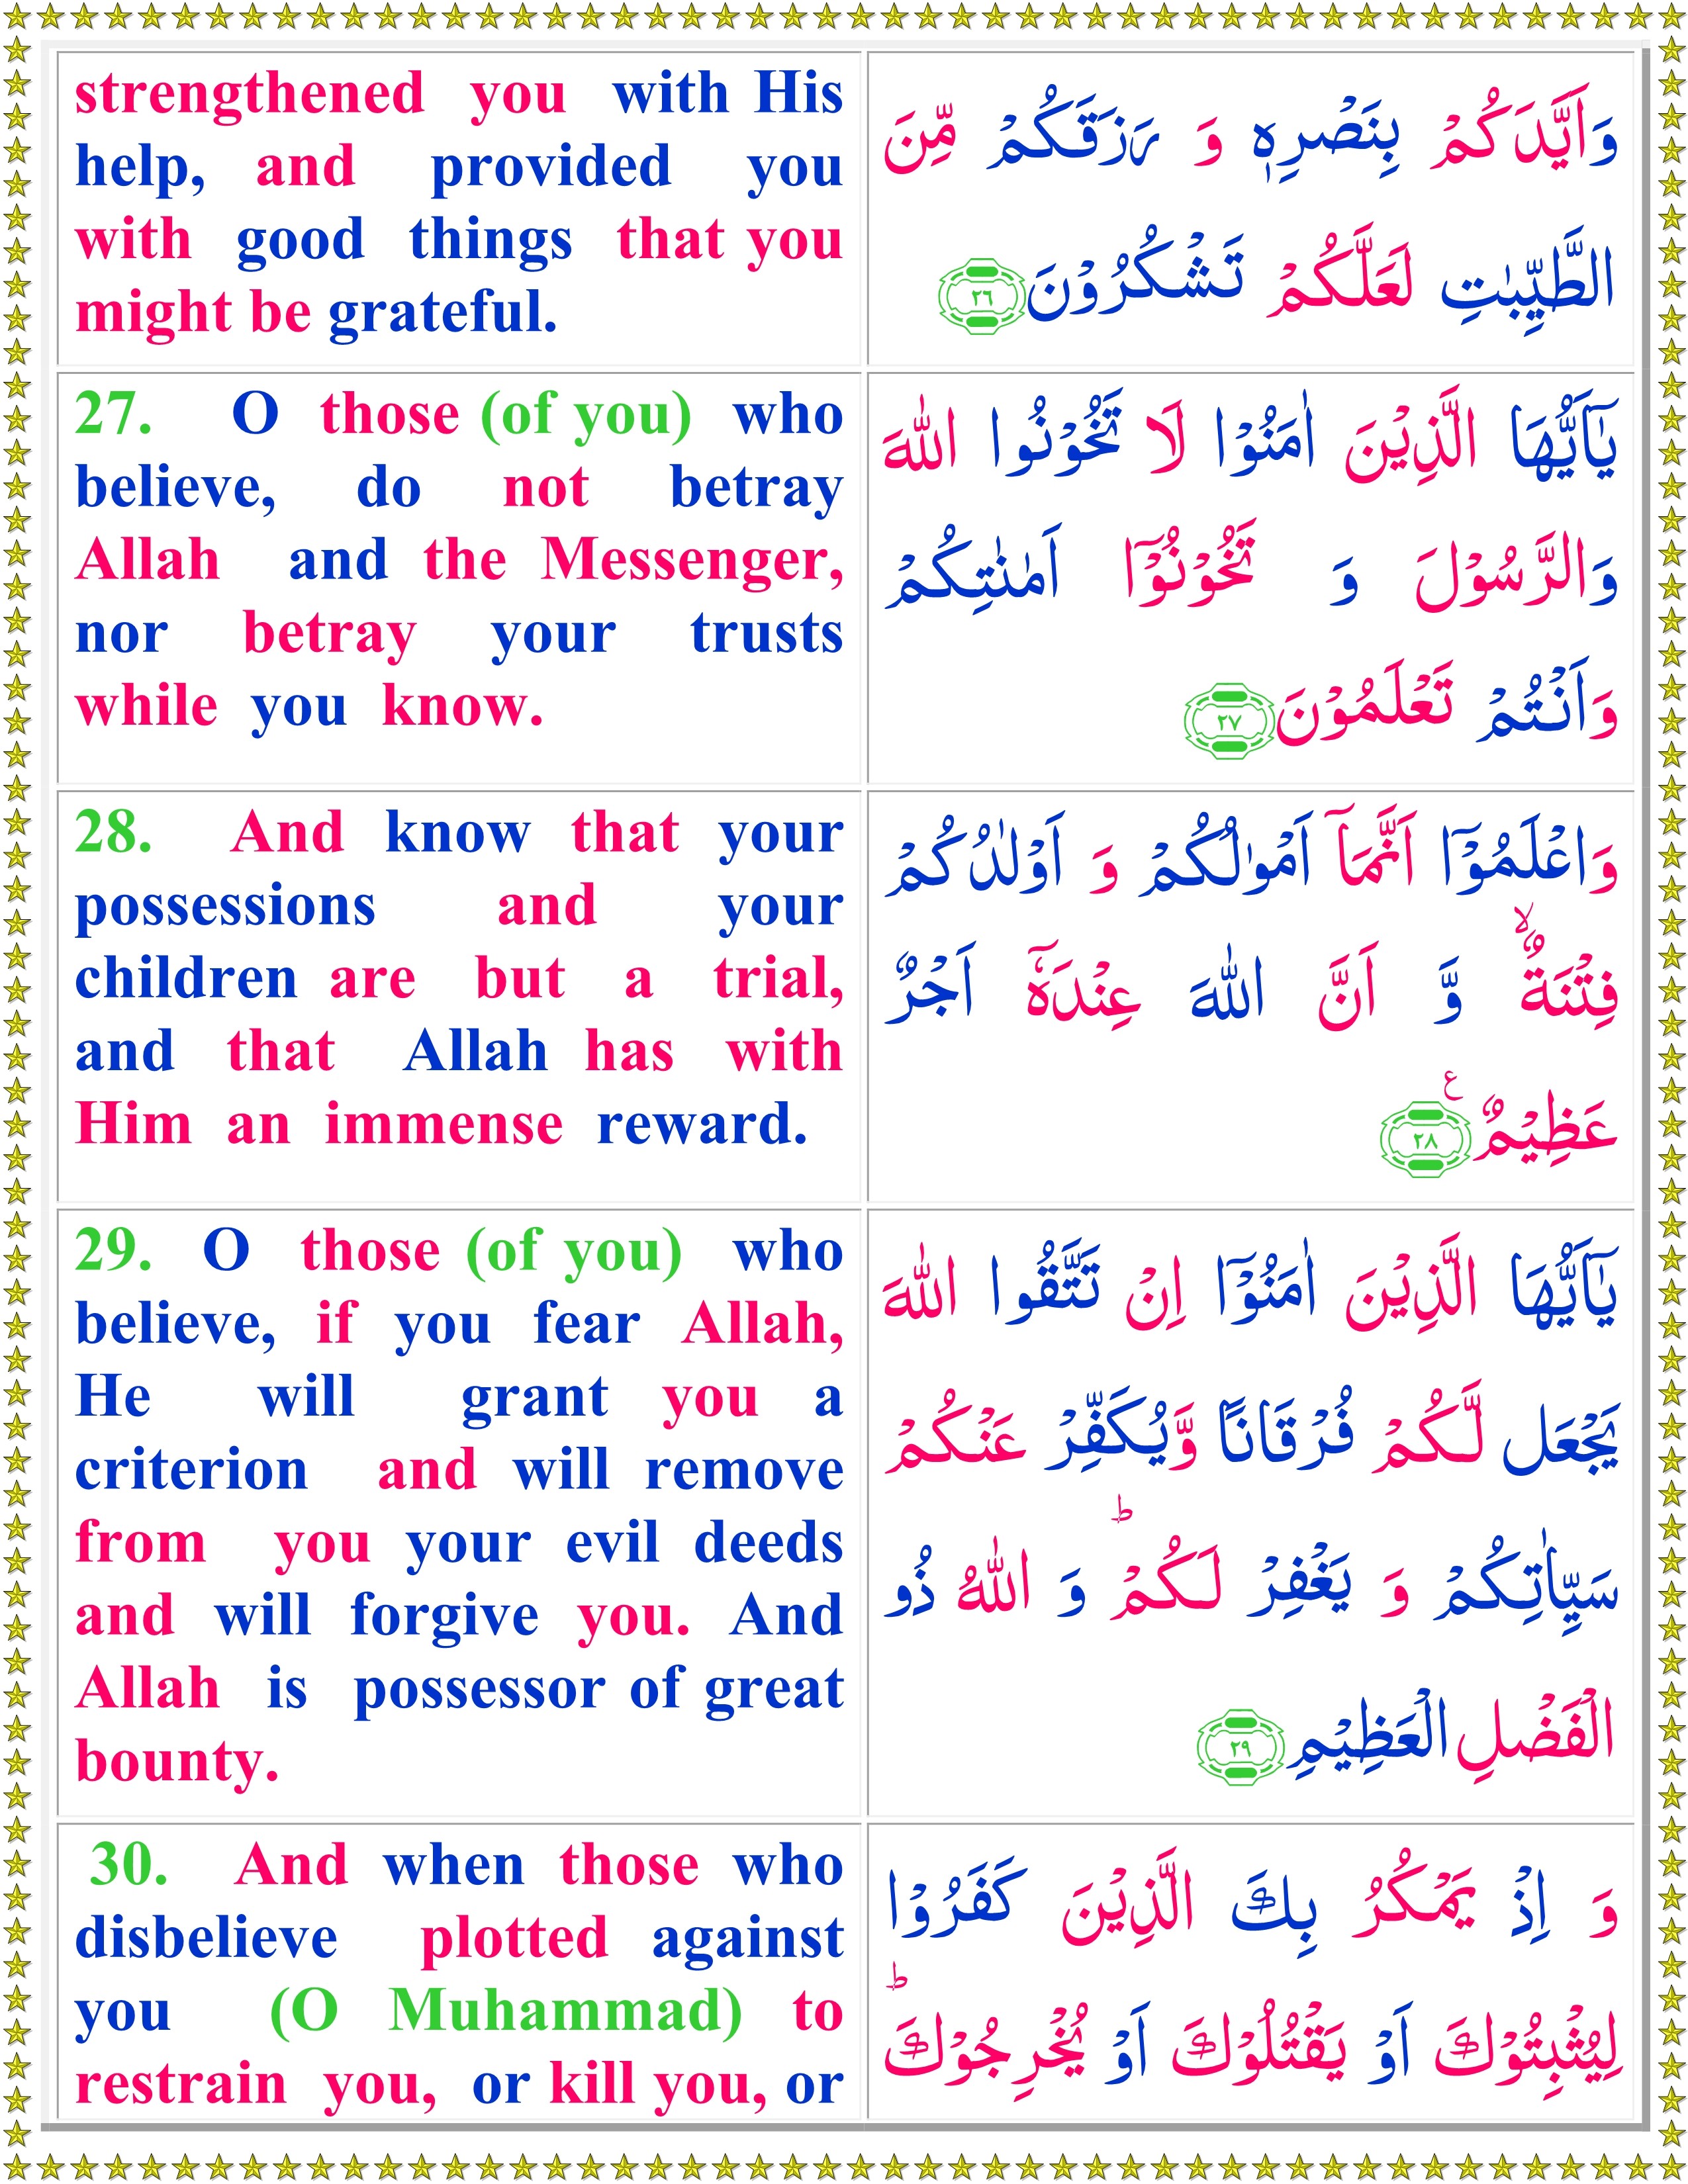 strengthened you with His
help, and provided you
with good things that you
might be grateful.
وَاَيَّدَكُمْ بِنَصْرِهٖ وَ رَزَقَكُمْ مِّنَ
الطَّيِّبٰتِ لَعَلَّكُمْ تَشْكُرُوْنَ ٢٦
27. O those (of you) who
believe, do not betray
Allah and the Messenger,
nor betray your trusts
while you know.
يٰۤاَيُّهَا الَّذِيْنَ اٰمَنُوْا لَا تَخُوْنُوا اللّٰهَ
وَالرَّسُوْلَ وَ تَخُوْنُوْۤا اَمٰنٰتِكُمْ
وَاَنْتُمْ تَعْلَمُوْنَ ٢٧
28. And know that your
possessions and your
children are but a trial,
and that Allah has with
Him an immense reward.
وَاعْلَمُوْۤا اَنَّمَاۤ اَمْوٰلُكُمْ وَ اَوْلٰدُكُمْ
فِتْنَةٌ ۙ وَّ اَنَّ اللّٰهَ عِنْدَهٗۤ اَجْرٌ
عَظِيْمٌ ٢٨ ع
29. O those (of you) who
believe, if you fear Allah,
He will grant you a
criterion and will remove
from you your evil deeds
and will forgive you. And
Allah is possessor of great
bounty.
يٰۤاَيُّهَا الَّذِيْنَ اٰمَنُوْۤا اِنْ تَتَّقُوا اللّٰهَ
يَجْعَل لَّكُمْ فُرْقَانًا وَّيُكَفِّرْ عَنْكُمْ
سَيِّاٰتِكُمْ وَ يَغْفِرْ لَكُمْ ؕ وَ اللّٰهُ ذُو
الْفَضْلِ الْعَظِيْمِ ٢٩
30. And when those who
disbelieve plotted against
you (O Muhammad) to
restrain you, or kill you, or
وَ اِذْ يَمْكُرُ بِكَ الَّذِيْنَ كَفَرُوْا
لِيُثْبِتُوْكَ اَوْ يَقْتُلُوْكَ اَوْ يُخْرِجُوْكَ ؕ